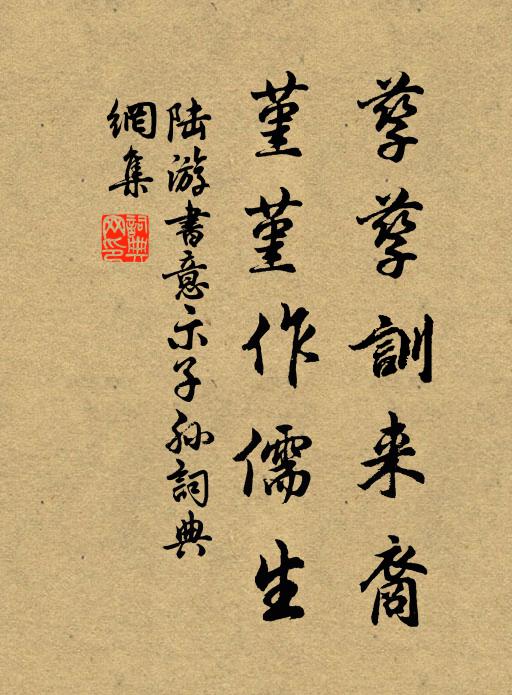 孳孳訓来裔
堇堇作儒生
陆游書意示子孫詞典
網集
詞典網印